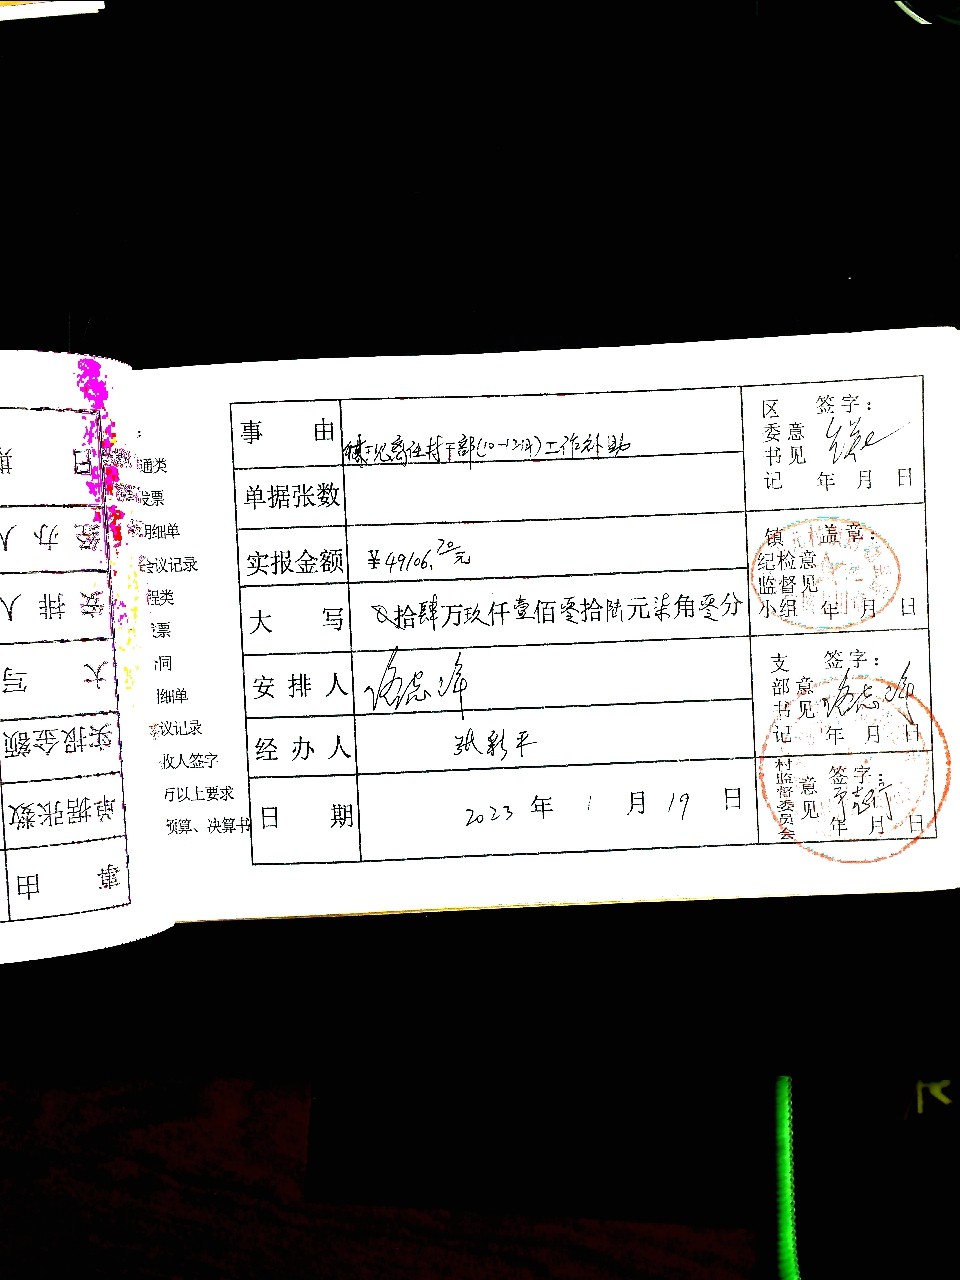 通类
发票
明细单
会议记录
程类
发票
合同
明细单
会议记录
收人签字
可以上要求
预算、决算书
事 由
离任村干部(10-12月)工作补助
单据张数
实报金额 ¥49106.70元
大 写 ⊗拾肆万玖仟壹佰零拾陆元柒角零分
安 排 人
经 办 人 张彩平
日 期 2023 年 1 月 19 日
区委书记意见 签字:
年 月 日
镇纪检监督小组意见 盖章:
年 月 日
支部书记意见 签字:
年 月 日
村监督委员会意见 签字:
年 月 日
日 期
经 办 人
安 排 人
大 写
实报金额
单据张数
事 由